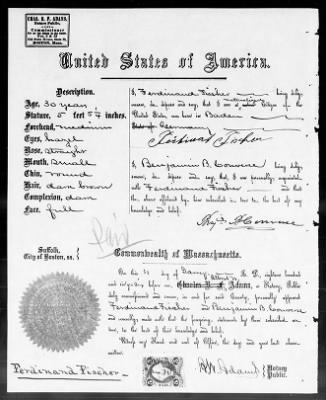 CHAS. R. F. ADAMS,
Notary Public,
Commissioner
BOSTON, Mass.
United States of America.
Description.
Age, 30 years
Stature, 5 feet 5¼ inches.
Forehead, medium
Eyes, hazel
Nose, straight
Mouth, small
Chin, round
Hair, dark brown
Complexion, dark
Face, full
I, Ferdinand Fischer being duly
sworn, do depose and say, that I am a Citizen of the
United States, and born in Baden
State of Germany
Ferdinand Fischer
I, Benjamin B. Converse being duly
sworn, do depose and say, that I am personally acquainted
with Ferdinand Fischer and that
the above affidavit by him subscribed is true to the best of my
knowledge and belief.
Benj. B. Converse
Paid
Suffolk,
City of Boston, ss.
Commonwealth of Massachusetts.
On this day A. D. eighteen hundred
and before me, Adams, a Notary Public
duly commissioned and sworn, in and for said County, personally appeared
Ferdinand Fischer and Benjamin B. Converse
and severally made oath that the foregoing statements by them subscribed are
true, to the best of their knowledge and belief.
Witness my Hand and seal of Office, the day and year last above
written.
Adams Notary
Public.
Ferdinand Fischer